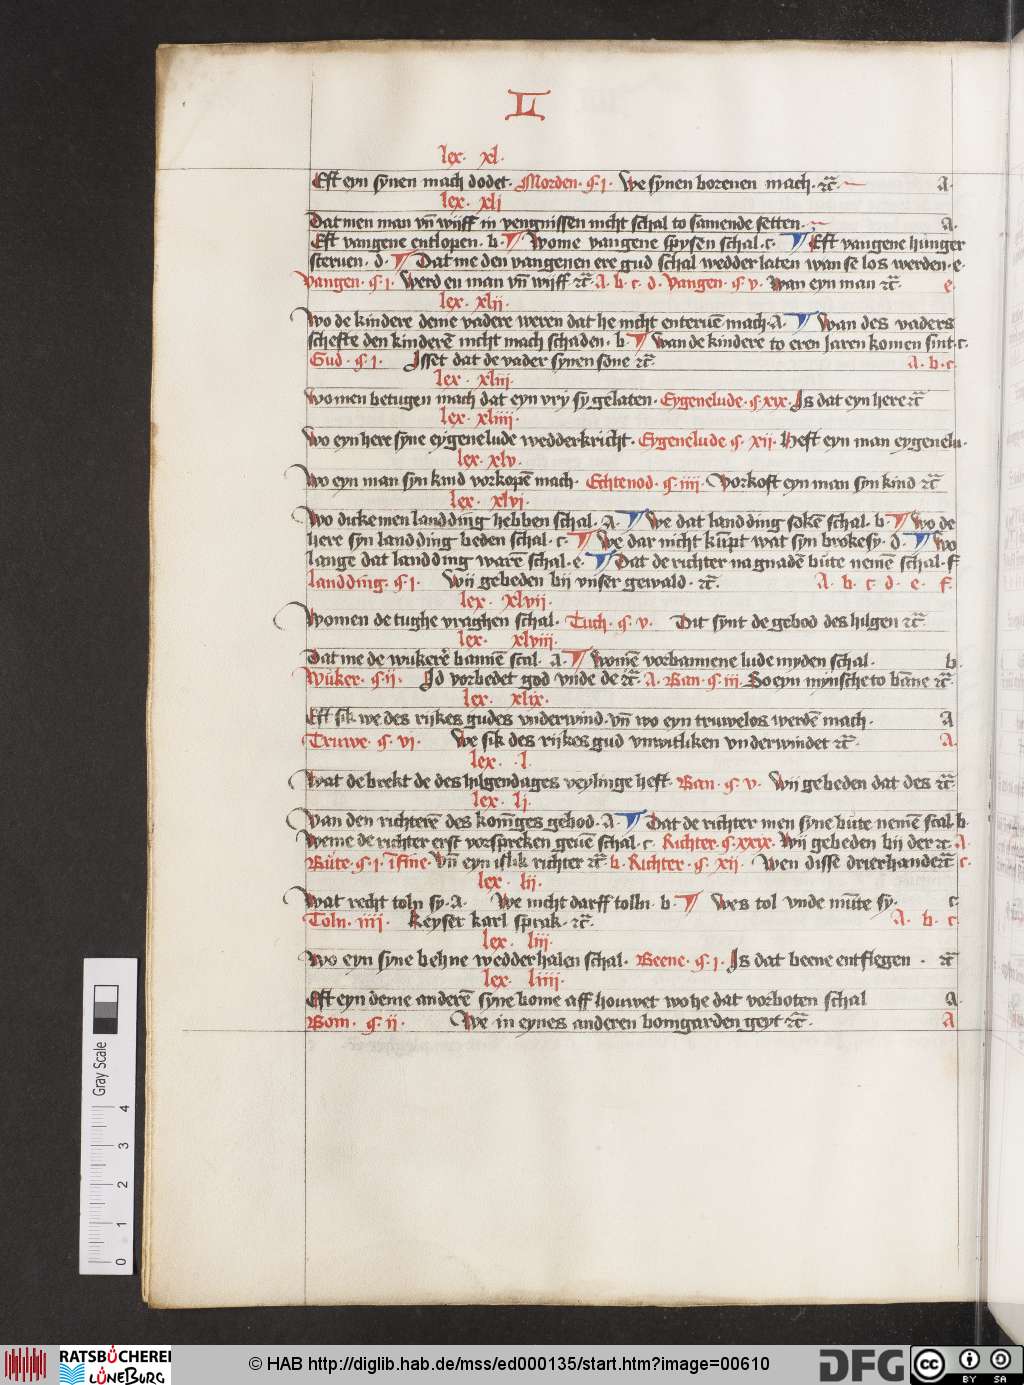 L
lex. xl.
Eft eyn synen mach dodet. Morden. §. j. We synen borenen mach. ꝛc̄ a.
lex. xlj
Dat men man vn̄ wijff in vengnissen nicht schal to samende setten. a.
Eft vangene entlopen. b. ¶ Wome vangene spysen schal. c. ¶ Eft vangene hunger
steruen. d. ¶ Dat me den vangenen ere gud schal wedder laten wan se los werden. e.
Vangen. §. j. Werd en man vn̄ wijff ꝛc̄. A. b. c. d. Vangen. §. v. Wan eyn man ꝛc̄. e.
lex. xlij.
Wo de kindere deme vadere weren dat he nicht enteruē mach. A. ¶ Wan des vaders
schefte den kinderē nicht mach schaden. b. ¶ Wan de kindere to eren Jaren komen sint. c.
Gud. §. j. Isset dat de vader synen sone ꝛc̄ a. b. c.
lex. xliij.
Women betugen mach dat eyn vry sy gelaten. Eygenelude. §. xix. Is dat eyn here ꝛc̄
lex. xliiij.
Wo eyn here syne eygenelude wedderkricht. Eygenelude §. xij. Heft eyn man eygenelu.
lex. xlv.
Wo eyn man syn kind vorkopē mach. Echtenod. §. iiij. Vorkoft eyn man syn kind ꝛc̄
lex. xlvj.
Wo dicke men landding hebben schal. A. ¶ We dat landding sokē schal. b. ¶ Wo de
here syn landding beden schal. c. ¶ We dar nicht kūpt wat syn broke sy. d. ¶ Wo
lange dat landding warē schal. e. ¶ Dat de richter na gnadē bute nemē schal. f
landding. §. j. Wij gebeden bij vnser gewald. ꝛc̄. A. b. c. d. e. f.
lex. xlvij.
Women de tughe vraghen schal. Tuch. §. v. Dit synt de gebod des hilgen ꝛc̄
lex. xlviij.
Dat me de wukerē bannē scal. a. ¶ Womē vorbannene lude myden schal. b.
Wuker. §. ij. Id vorbedet god vnde de ꝛc̄. A. Ban. §. iij. So eyn mynsche to bāne ꝛc̄.
lex. xlix.
Eft sik we des rijkes gudes vnderwind. vn̄ wo eyn truwelos werdē mach. A
Truwe. §. vj. We sik des rijkes gud vnwitliken vnderwindet ꝛc̄. a.
lex. l.
Wat de brekt de des hilgendages veylinge heft. Ban. §. v. Wij gebeden dat des ꝛc̄.
lex. lj.
Van den richterē des konīges gebod. A. ¶ Dat de richter men syne bute nemē scal. b.
Weme de richter erst vorspreken geuē schal. c. Richter. §. xxxix. Wij gebeden bij der ꝛc. a.
Bute. §. j. in fine. Vn̄ eyn islik richter ꝛc̄ b. Richter. §. xij. Wen disse drierhande ꝛc̄ c.
lex. lij.
Wat recht toln sy. A. We nicht darff tolln. b. ¶ Wes tol vnde mūte sy. c.
Toln. iiij. Keyser karl sprak. ꝛc̄. a. b. c.
lex. liij.
Wo eyn syne behne wedderhalen schal. Beene. §. j. Is dat beene entflegen. ꝛc̄
lex. liiij.
Eft eyn deme anderē syne bome aff houwet wo he dat vorboten schal a.
Bom. §. ij. We in eynes anderen bomgarden geyt ꝛc̄. A
Gray Scale
0 1 2 3 4
RATSBÜCHEREI
LÜNEBURG
© HAB http://diglib.hab.de/mss/ed000135/start.htm?image=00610
DFG
cc BY SA